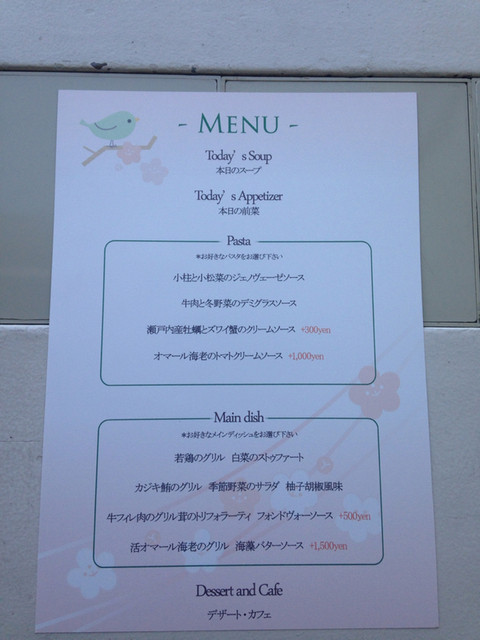 - MENU -
Today's Soup
本日のスープ
Today's Appetizer
本日の前菜
Pasta
*お好きなパスタをお選び下さい
小柱と小松菜のジェノヴェーゼソース
牛肉と冬野菜のデミグラスソース
瀬戸内産牡蠣とズワイ蟹のクリームソース +300yen
オマール海老のトマトクリームソース +1,000yen
Main dish
*お好きなメインディッシュをお選び下さい
若鶏のグリル 白菜のストゥファート
カジキ鮪のグリル 季節野菜のサラダ 柚子胡椒風味
牛フィレ肉のグリル茸のトリフォラーティ フォンドヴォーソース +500yen
活オマール海老のグリル 海藻バターソース +1,500yen
Dessert and Cafe
デザート・カフェ